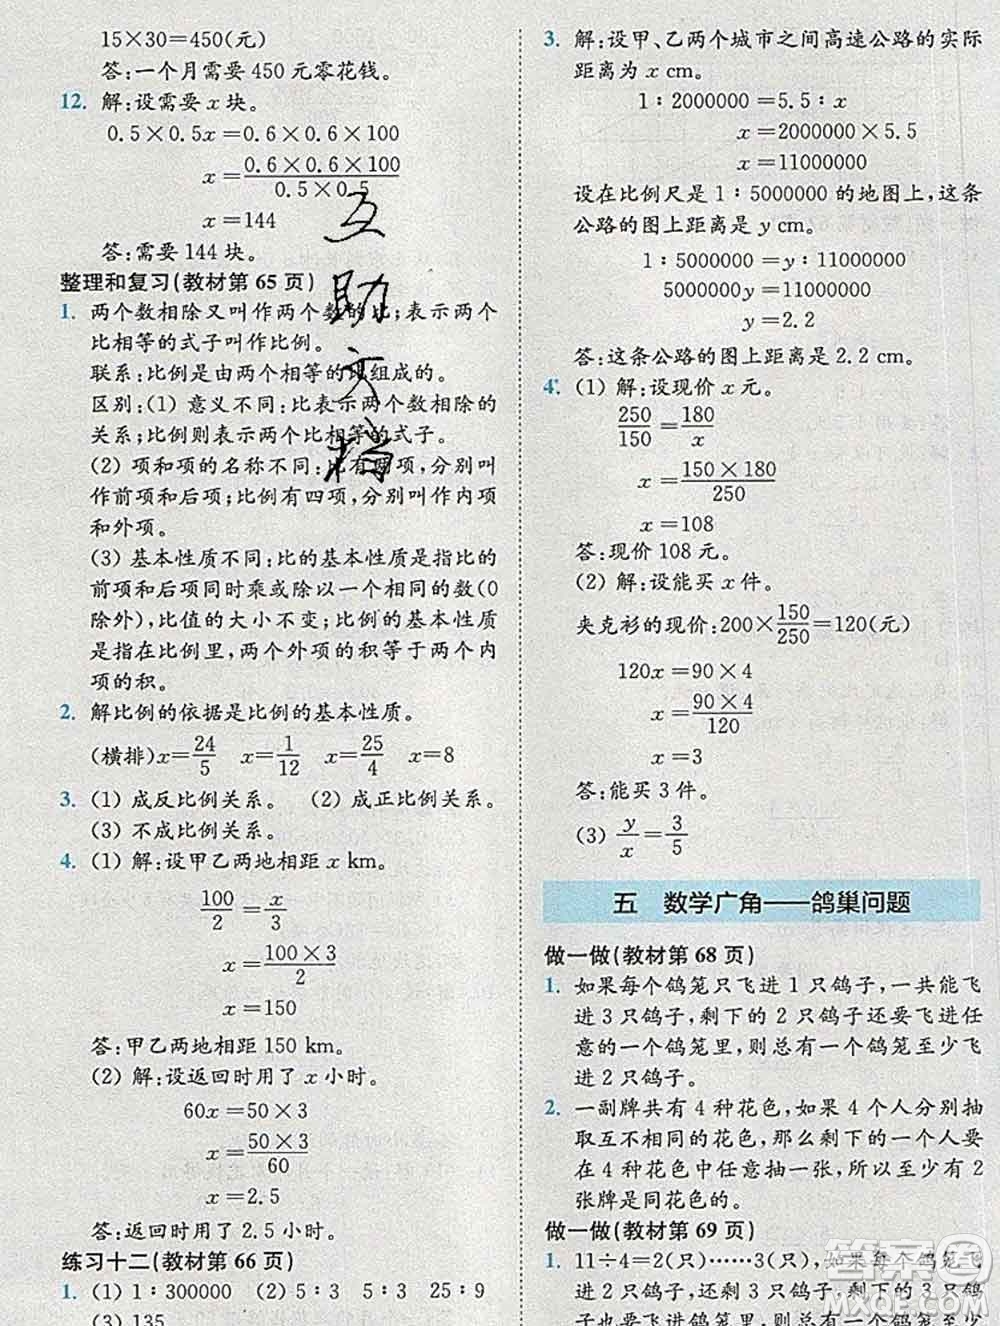 15×30=450(元)
答:一个月需要 450 元零花钱。
12. 解:设需要 x 块。
0.5×0.5x=0.6×0.6×100
x=0.6×0.6×100/0.5×0.5
x=144
答:需要 144 块。
整理和复习(教材第 65 页)
1. 两个数相除又叫作两个数的比;表示两个
比相等的式子叫作比例。
联系:比例是由两个相等的比组成的。
区别:(1) 意义不同:比表示两个数相除的
关系;比例则表示两个比相等的式子。
(2) 项和项的名称不同:比有两项,分别叫
作前项和后项;比例有四项,分别叫作内项
和外项。
(3) 基本性质不同:比的基本性质是比的
前项和后项同时乘或除以一个相同的数(0
除外),比值的大小不变;比例的基本性质
是指在比例里,两个外项的积等于两个内
项的积。
2. 解比例的依据是比例的基本性质。
(横排)x=24/5 x=1/12 x=25/4 x=8
3. (1) 成反比例关系。 (2) 成正比例关系。
(3) 不成比例关系。
4. (1) 解:设甲乙两地相距 x km。
100/2=x/3
x=100×3/2
x=150
答:甲乙两地相距 150 km。
(2) 解:设返回时用了 x 小时。
60x=50×3
x=50×3/60
x=2.5
答:返回时用了 2.5 小时。
练习十二(教材第 66 页)
1. (1) 1∶300000 (2) 5∶3 5∶3 25∶9
(3) 135
互
助
文
档
3. 解:设甲、乙两个城市之间高速公路的实际
距离为 x cm。
1∶2000000=5.5∶x
x=2000000×5.5
x=11000000
设在比例尺是 1∶5000000 的地图上,这条
公路的图上距离是 y cm。
1∶5000000=y∶11000000
5000000y=11000000
y=2.2
答:这条公路的图上距离是 2.2 cm。
4. (1) 解:设现价 x 元。
250/150=180/x
x=150×180/250
x=108
答:现价 108 元。
(2) 解:设能买 x 件。
夹克衫的现价:200×150/250=120(元)
120x=90×4
x=90×4/120
x=3
答:能买 3 件。
(3) y/x=3/5
五 数学广角——鸽巢问题
做一做(教材第 68 页)
1. 如果每个鸽笼只飞进 1 只鸽子,一共能飞
进 3 只鸽子,剩下的 2 只鸽子还要飞进任
意的一个鸽笼里,则总有一个鸽笼至少飞
进 2 只鸽子。
2. 一副牌共有 4 种花色,如果 4 个人分别抽
取互不相同的花色,那么剩下的一个人需
要在 4 种花色中任意抽一张,所以至少有 2
张牌是同花色的。
做一做(教材第 69 页)
1. 11÷4=2(只)……3(只),如果每个鸽笼飞
进 2 只鸽子,剩下 3 只鸽子
个鸽笼里,则总有一个鸽笼至少飞进 3 只
答案圈
MXQE.COM